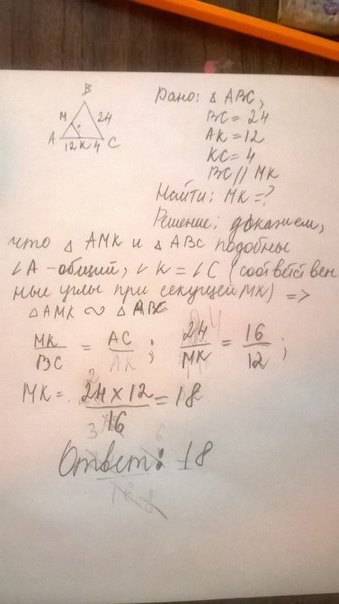 B
M 24
A 12 K 4 C
Дано: △ ABC,
BC = 24
AK = 12
KC = 4
BC // MK
Найти: MK = ?
Решение: докажем,
что △ AMK и △ ABC подобны
∠A - общий, ∠K = ∠C (соответствен
ные углы при секущей MK) =>
△ AMK ∾ △ ABC
MK/BC = AC/AK ; 24/MK = 16/12 ;
MK = 24 × 12/16 = 18
Ответ: 18